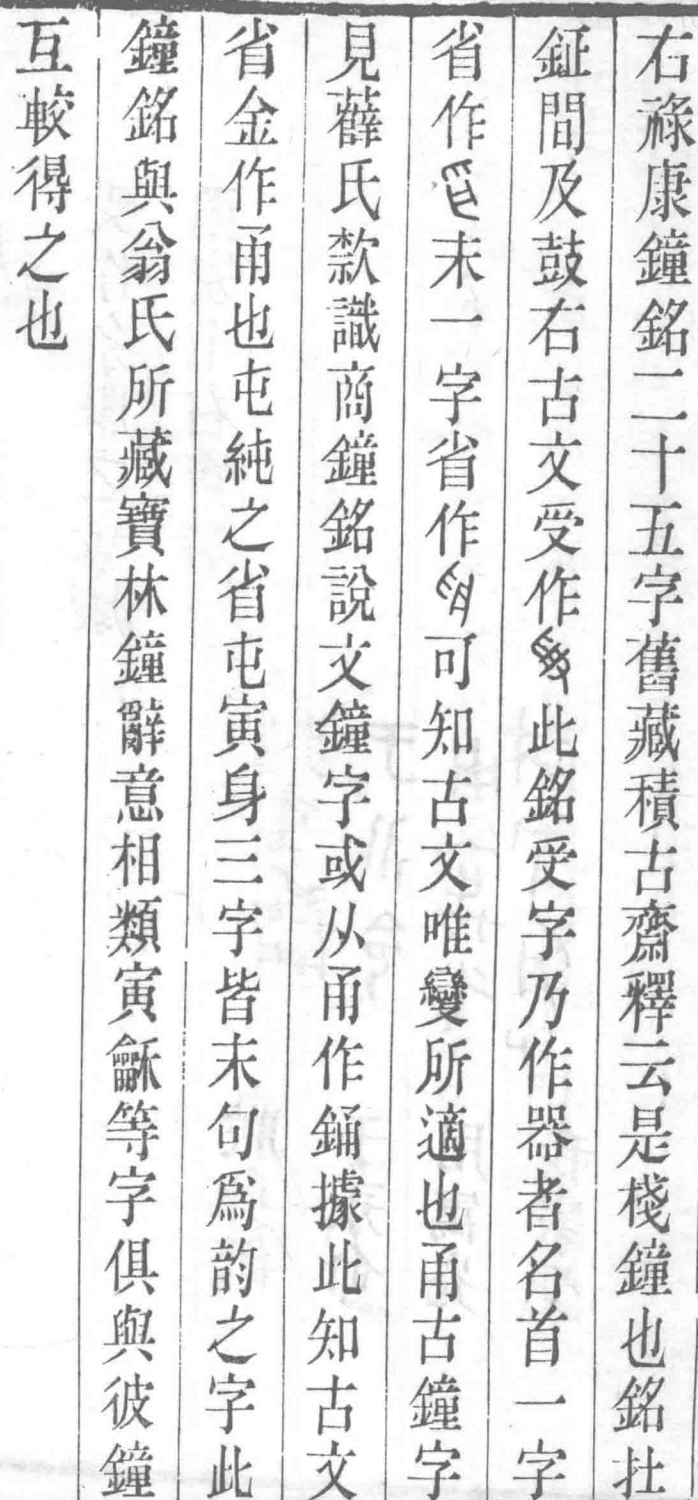 右祿康鐘銘二十五字舊藏積古齋釋云是棧鐘也銘在
鉦間及鼓右古文受作此銘受字乃作器者名首一字
省作末一字省作可知古文唯變所適也甬古鐘字
見薛氏欵識商鐘銘說文鐘字或从甬作銿據此知古文
省金作甬也屯純之省屯寅身三字皆末句爲韵之字此
鐘銘與翁氏所藏寶林鐘辭意相類寅龢等字俱與彼鐘
互較得之也